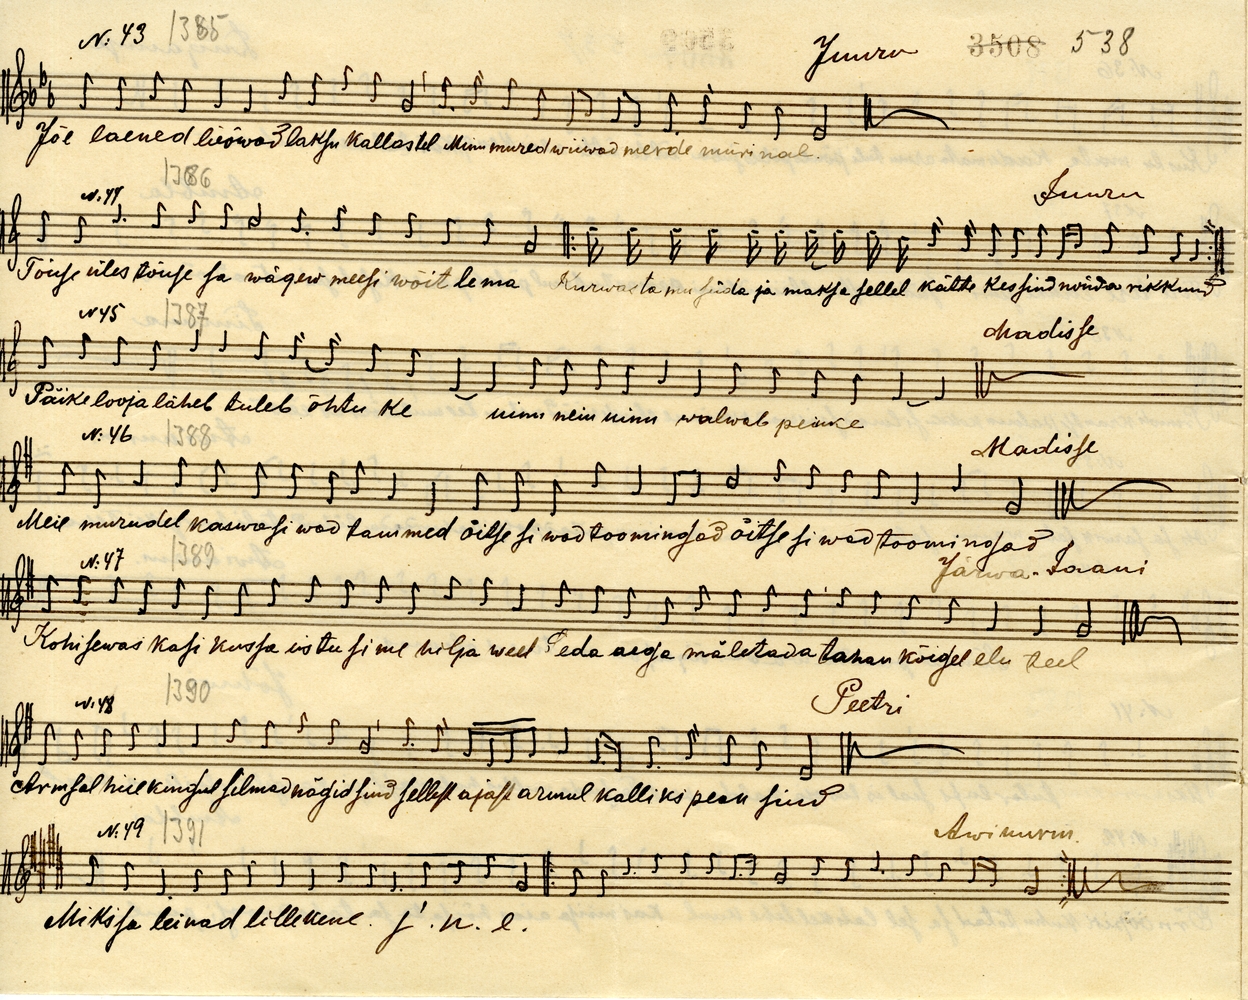 N: 43 1385 Juuru 3508 538
Jõe laened liẽowad laksu kallastel Minu mured wiiwad merde mürinal.
N. 44 1386 Juuru
Tõuse üles tõuse sa wägew meesi wõitlema Kurwasta mu süda ja maksa sellel kätte kes sind nõnda rikkund
N 45 1387 Madisse
Päike looja läheb tuleb õhtu ke uinu neiu uinu walwab peiuke
N: 46 1388 Madisse
Meie murudel kaswasiwad tammed õitsesiwad toomingad õitsesiwad toomingad
N: 47 1389 Järwa-Jaani
Kohisewas kasikussa istusime hilja weel Seda aega mäletada tahan kõigel elu teel
N. 48 1390 Peetri
Armsal hiiekingul silmad nägid sind sellest ajast armul kalliks pean sind
N: 49 1391 Awinurm.
Miks sa leinad lillekene. j. n. e.